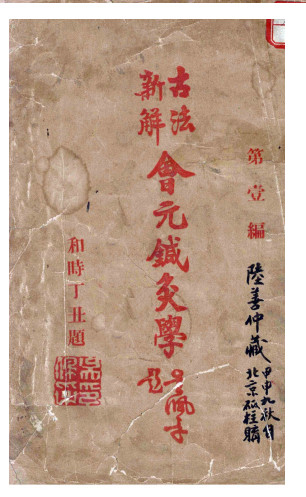 第壹編
陸善仲藏
甲申九秋
北京
古法
新解
會元鍼灸學
題
和時丁丑題